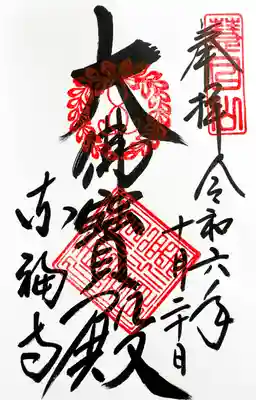 慧日山
奉拝
令和六年
十月二十日
大佛寶殿
東福寺